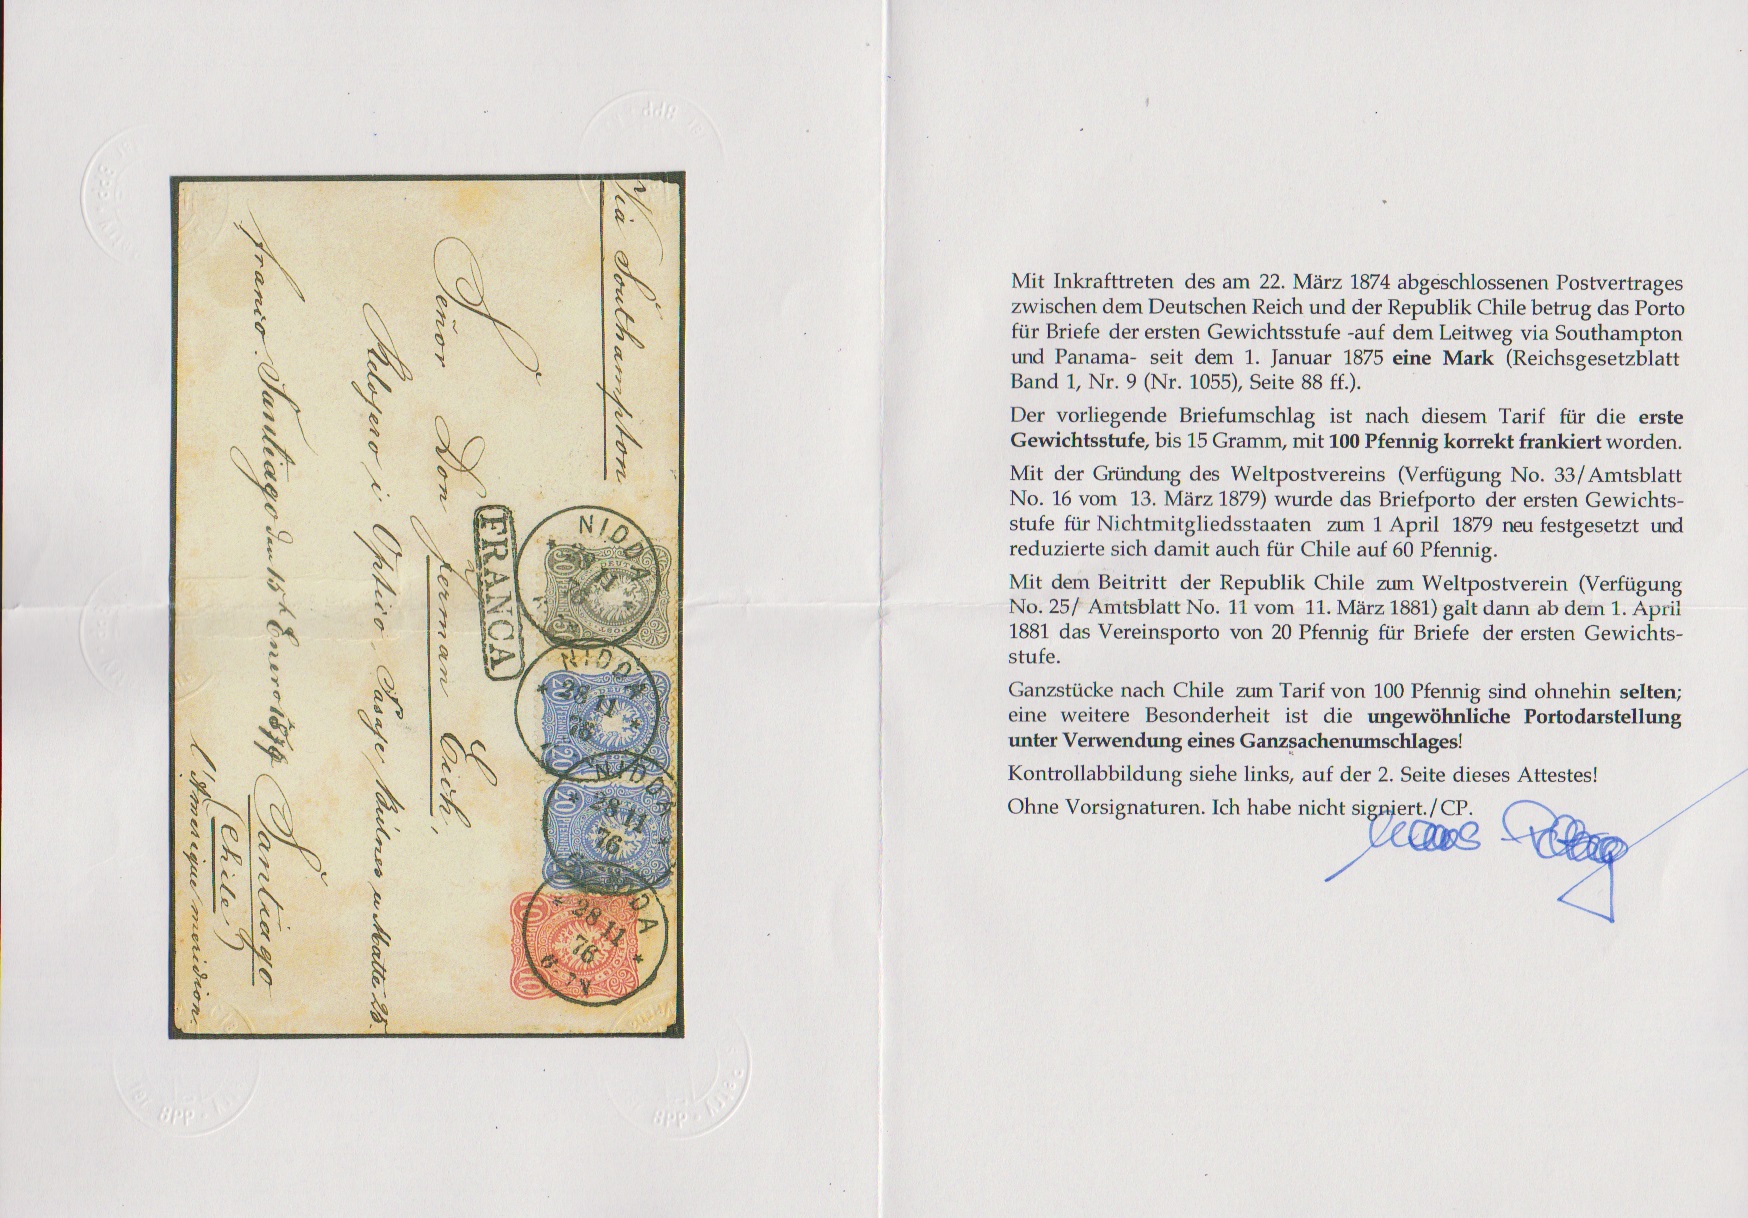 Via Southampton
Señor Don German Eich,
Relojero i Optico. Pasaje Bulnes u Matte 25.
franco. Santiago den 15th Enero 1877
Santiago
(Chile)
l'Amerique meridion.
FRANCA
NIDDA
28 11
76
50
PFENNIG
NIDDA
28 11
76
20
NIDDA
28 11
76
20
NIDDA
28 11
76
6-7N
10
Mit Inkrafttreten des am 22. März 1874 abgeschlossenen Postvertrages
zwischen dem Deutschen Reich und der Republik Chile betrug das Porto
für Briefe der ersten Gewichtsstufe -auf dem Leitweg via Southampton
und Panama- seit dem 1. Januar 1875 eine Mark (Reichsgesetzblatt
Band 1, Nr. 9 (Nr. 1055), Seite 88 ff.).
Der vorliegende Briefumschlag ist nach diesem Tarif für die erste
Gewichtsstufe, bis 15 Gramm, mit 100 Pfennig korrekt frankiert worden.
Mit der Gründung des Weltpostvereins (Verfügung No. 33/Amtsblatt
No. 16 vom 13. März 1879) wurde das Briefporto der ersten Gewichts-
stufe für Nichtmitgliedsstaaten zum 1 April 1879 neu festgesetzt und
reduzierte sich damit auch für Chile auf 60 Pfennig.
Mit dem Beitritt der Republik Chile zum Weltpostverein (Verfügung
No. 25/ Amtsblatt No. 11 vom 11. März 1881) galt dann ab dem 1. April
1881 das Vereinsporto von 20 Pfennig für Briefe der ersten Gewichts-
stufe.
Ganzstücke nach Chile zum Tarif von 100 Pfennig sind ohnehin selten;
eine weitere Besonderheit ist die ungewöhnliche Portodarstellung
unter Verwendung eines Ganzsachenumschlages!
Kontrollabbildung siehe links, auf der 2. Seite dieses Attestes!
Ohne Vorsignaturen. Ich habe nicht signiert./CP.